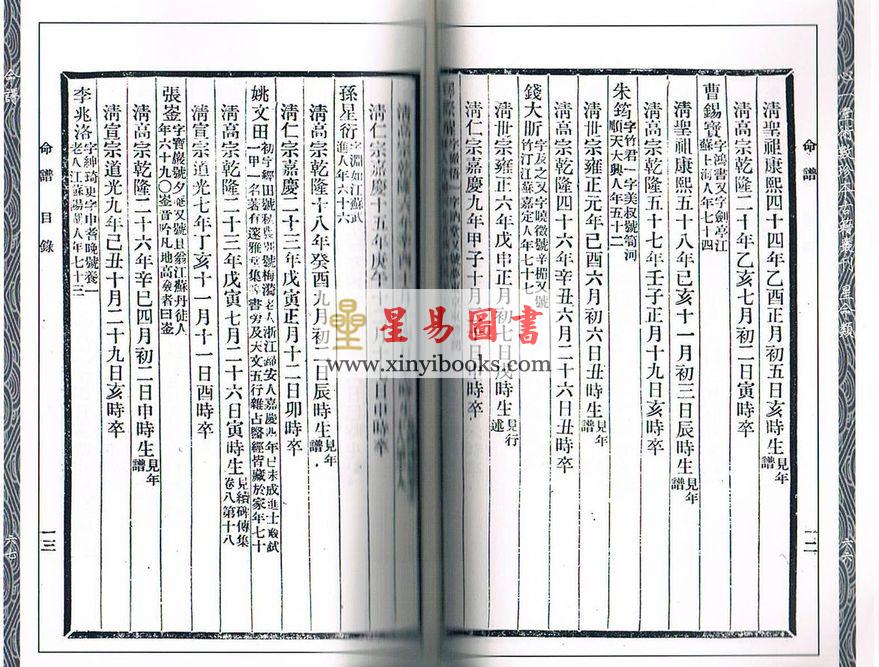 心一堂術數珍本古籍叢刊 星命類
六六
命譜
一二
清聖祖康熙四十四年乙酉正月初五日亥時生 見年譜
清高宗乾隆二十年乙亥七月初二日寅時卒
曹錫寶 字鴻書又字劍亭江蘇上海人年七十四
清聖祖康熙五十八年己亥十一月初三日辰時生 見年譜
清高宗乾隆五十七年壬子正月十九日亥時卒
朱筠 字竹君一字美叔號笥河順天大興人年五十二
清世宗雍正元年己酉六月初六日丑時生 見年譜
清高宗乾隆四十六年辛丑六月二十六日丑時卒
錢大昕 字及之又字曉徵號辛楣又號竹汀江蘇嘉定人年七十七
清世宗雍正六年戊申正月初七日戌時生 見行述
清仁宗嘉慶九年甲子十月日申時卒
清仁宗嘉慶十五年庚午日申時卒
孫星衍 字淵如江蘇武進人年六十六
清高宗乾隆十八年癸酉九月初二日辰時生 見年譜
清仁宗嘉慶二十三年戊寅正月十二日卯時卒
姚文田 初字經田號秋農別號梅漪老人浙江歸安人嘉慶四年己未成進士殿試一甲一名著有邃雅堂集等書旁及天文五行雜占醫經皆藏於家年七十
清高宗乾隆二十三年戊寅七月二十六日寅時生 見續碑傳集卷八第十八
清宣宗道光七年丁亥十一月十日酉時卒
張崟 字寶巖號夕菴又號且翁江蘇丹徒人年六十九〇崟音吟凡地高險者曰崟
清高宗乾隆二十六年辛巳四月初二日申時生 見年譜
清宣宗道光九年己丑十月二十九日亥時卒
李兆洛 字紳琦更字申耆晚號養一老人江蘇陽湖人年七十三
命譜 目錄
一三
命譜
六七
星易圖書
www.xinyibooks.com